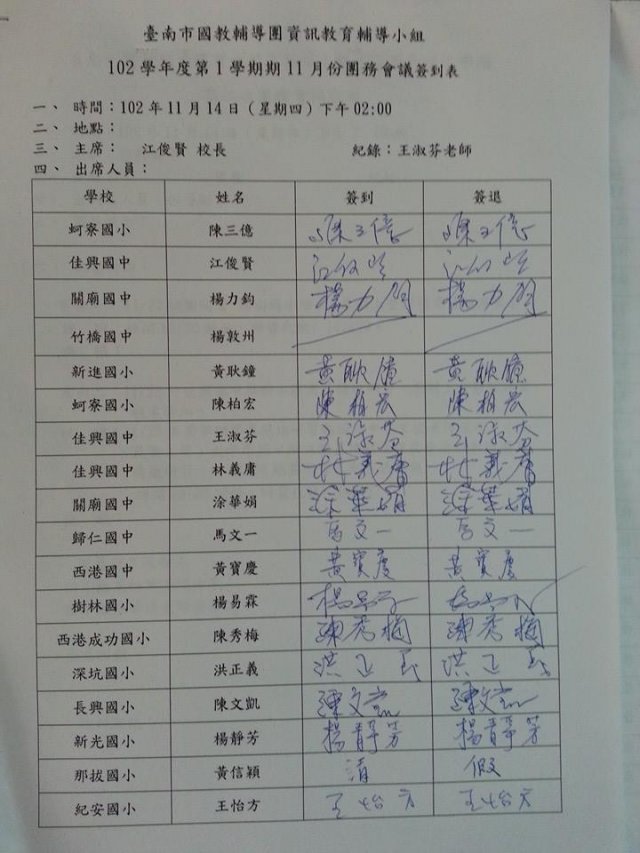 臺南市國教輔導團資訊教育輔導小組
102 學年度第 1 學期期 11 月份團務會議簽到表
一、 時間：102 年 11 月 14 日（星期四）下午 02:00
二、 地點：
三、 主席： 江俊賢 校長 紀錄：王淑芬老師
四、 出席人員：
學校 姓名 簽到 簽退
蚵寮國小 陳三億 陳三億 陳三億
佳興國中 江俊賢 江俊賢 江俊賢
關廟國中 楊力鈞 楊力鈞 楊力鈞
竹橋國中 楊敦州
新進國小 黃耿鐘 黃耿鐘 黃耿鐘
蚵寮國小 陳柏宏 陳柏宏 陳柏宏
佳興國中 王淑芬 王淑芬 王淑芬
佳興國中 林義庸 林義庸 林義庸
關廟國中 涂華娟 涂華娟 涂華娟
歸仁國中 馬文一 馬文一 馬文一
西港國中 黃寶慶 黃寶慶 黃寶慶
樹林國小 楊易霖 楊易霖 楊易霖
西港成功國小 陳秀梅 陳秀梅 陳秀梅
深坑國小 洪正義 洪正義 洪正義
長興國小 陳文凱 陳文凱 陳文凱
新光國小 楊靜芳 楊靜芳 楊靜芳
那拔國小 黃信穎 請 假
紀安國小 王怡方 王怡方 王怡方